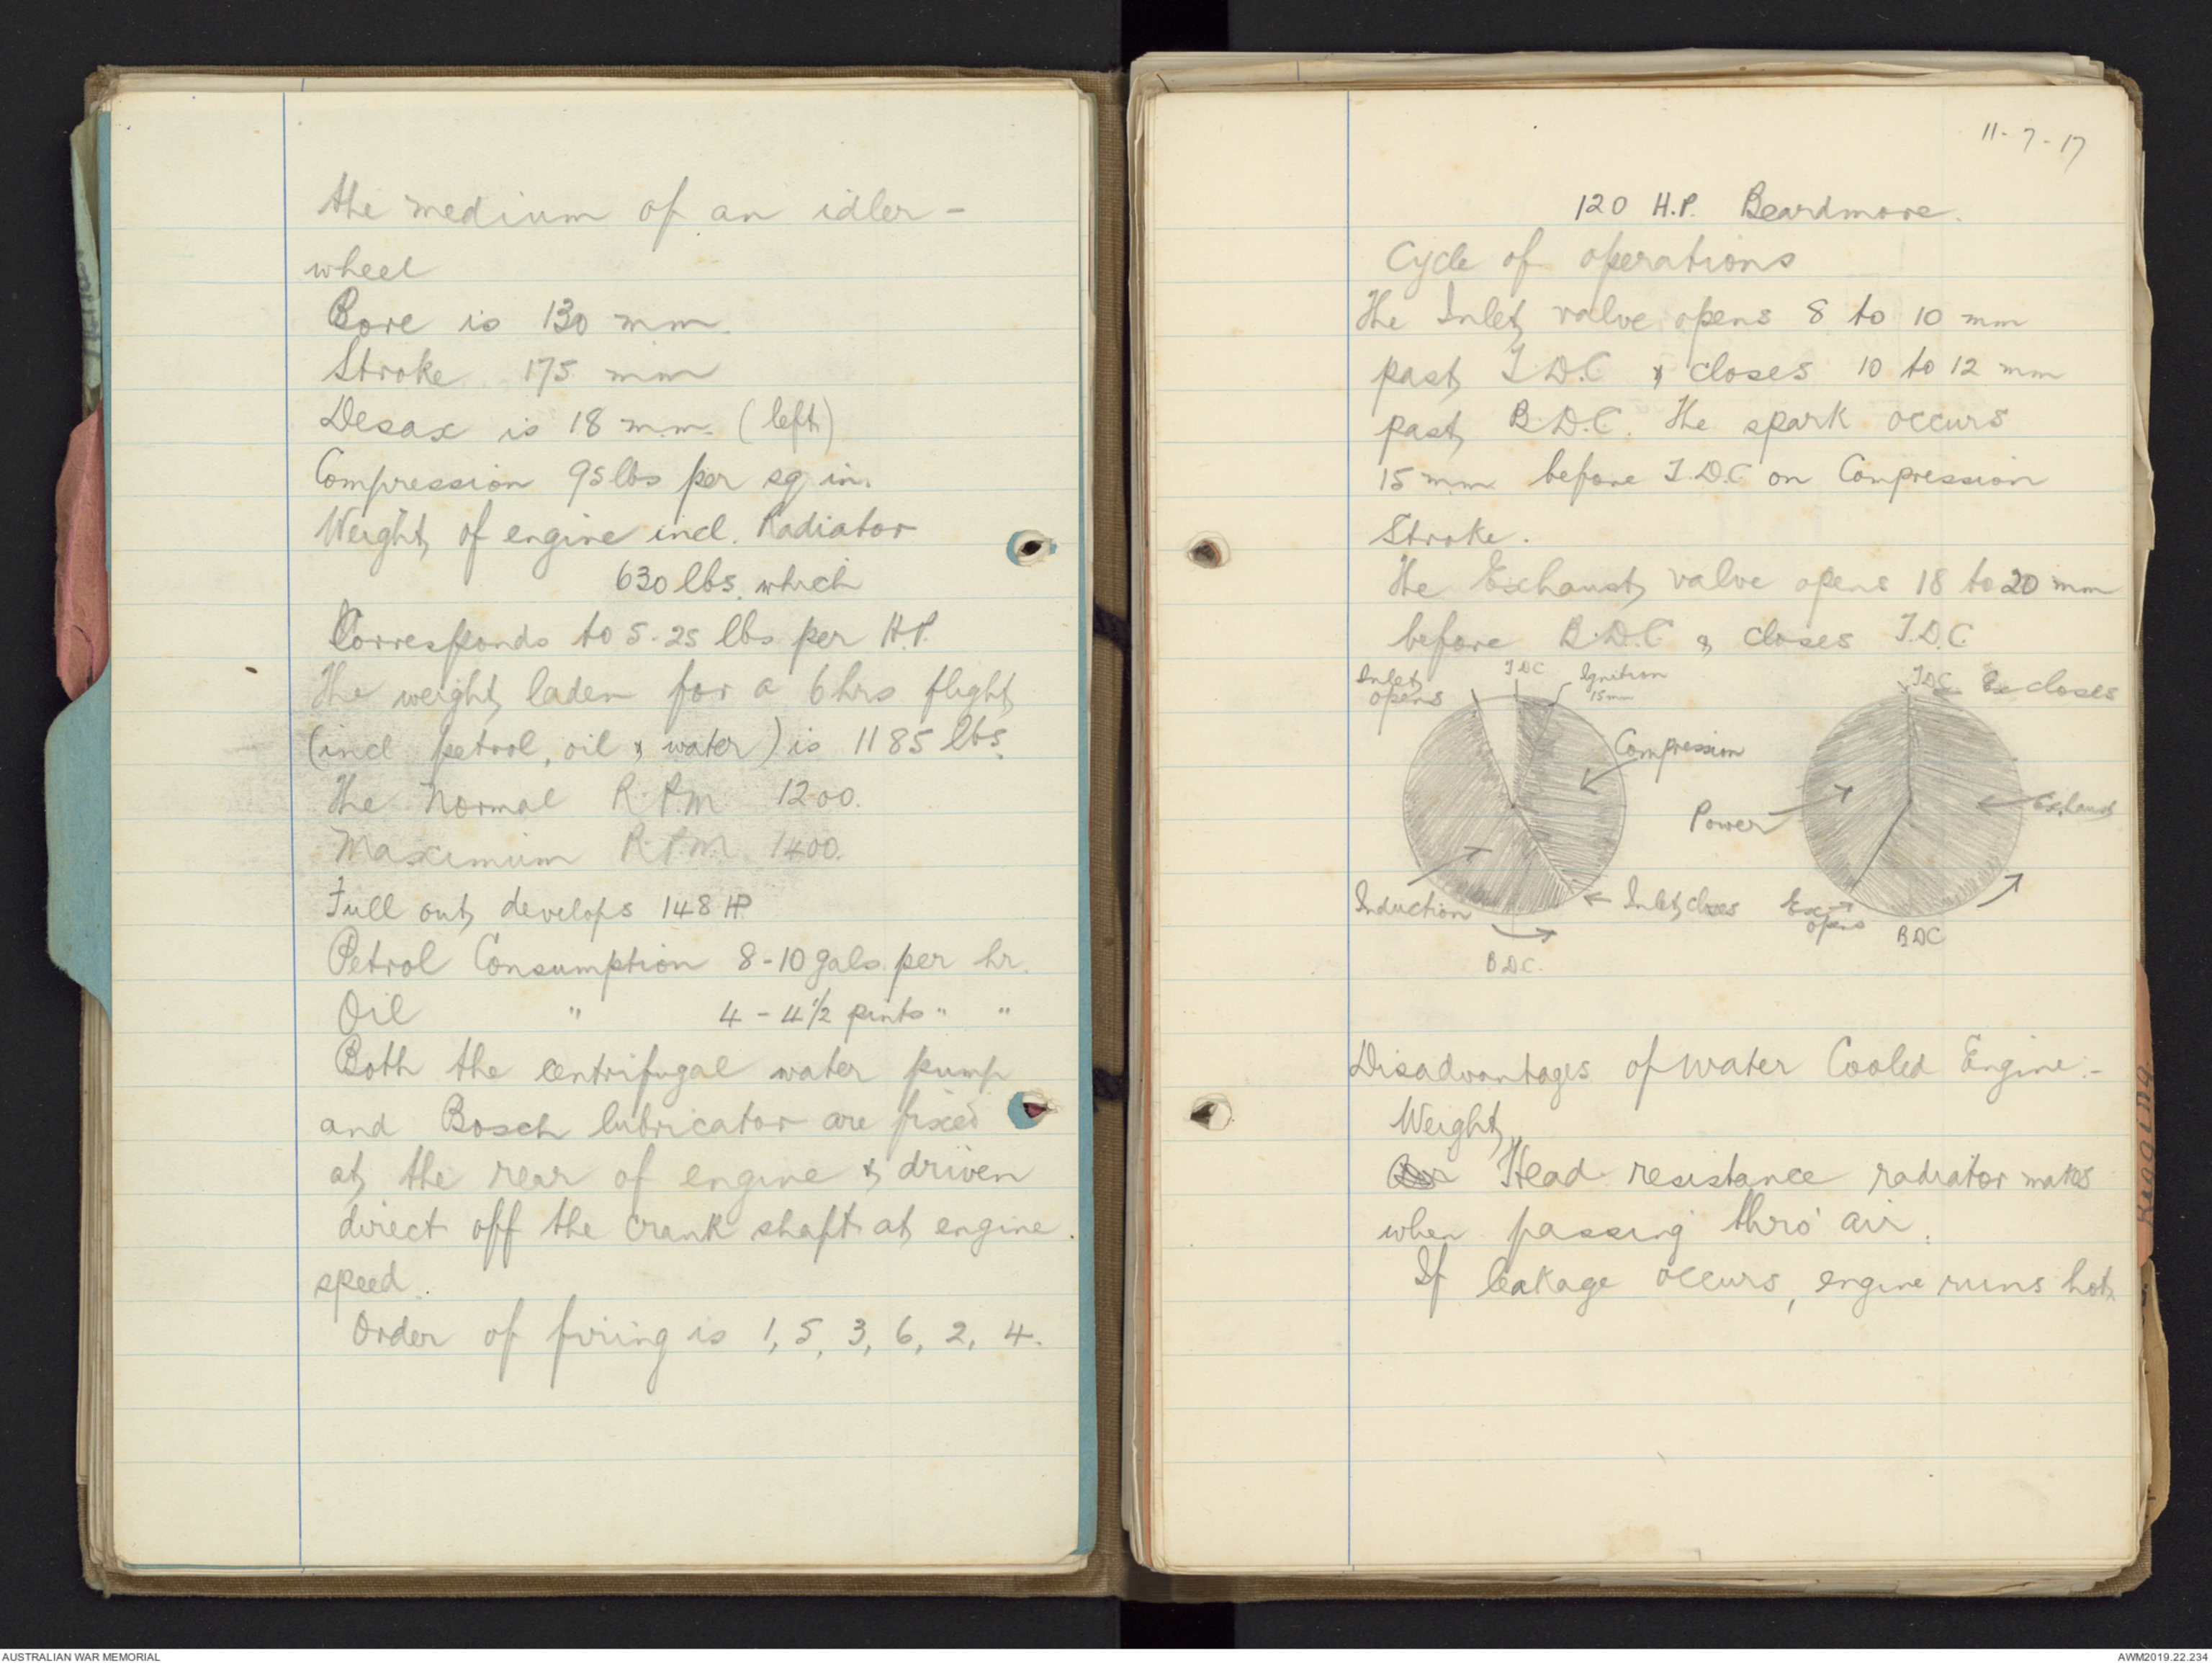 the medium of an idler -
wheel
Bore is 130 mm.
Stroke 175 mm
Desax is 18 m.m. (left)
Compression 95 lbs per sq in.
Weight of engine incl. Radiator
630 lbs. which
Corresponds to 5.25 lbs per H.P.
The weight laden for a 6 hrs flight
(incl petrol, oil & water) is 1185 lbs.
The Normal R.P.M 1200.
Maximum R.P.M. 1400.
Full out develops 148 HP
Petrol Consumption 8-10 gals per hr.
Oil " 4 - 4 1/2 pints " "
Both the centrifugal water pump
and Bosch lubricator are fixed
at the rear of engine & driven
direct off the crank shaft at engine
speed.
Order of firing is 1, 5, 3, 6, 2, 4.
11-7-17
120 H.P. Beardmore.
Cycle of operations
The Inlet valve opens 8 to 10 mm
past T.D.C & closes 10 to 12 mm
past B.D.C. The spark occurs
15 mm before T.D.C on Compression
Stroke.
The Exhaust valve opens 18 to 20 mm
before B.D.C & closes T.D.C.
Inlet opens
TDC
Ignition
15mm
Compression
Induction
Inlet closes
B.D.C.
TDC
Ex closes
Power
Exhaust
Ex opens
BDC
Disadvantages of water Cooled Engine.-
Weight
Head resistance radiator makes
when passing thro' air.
If leakage occurs, engine runs hot.
AUSTRALIAN WAR MEMORIAL
AWM2019.22.234